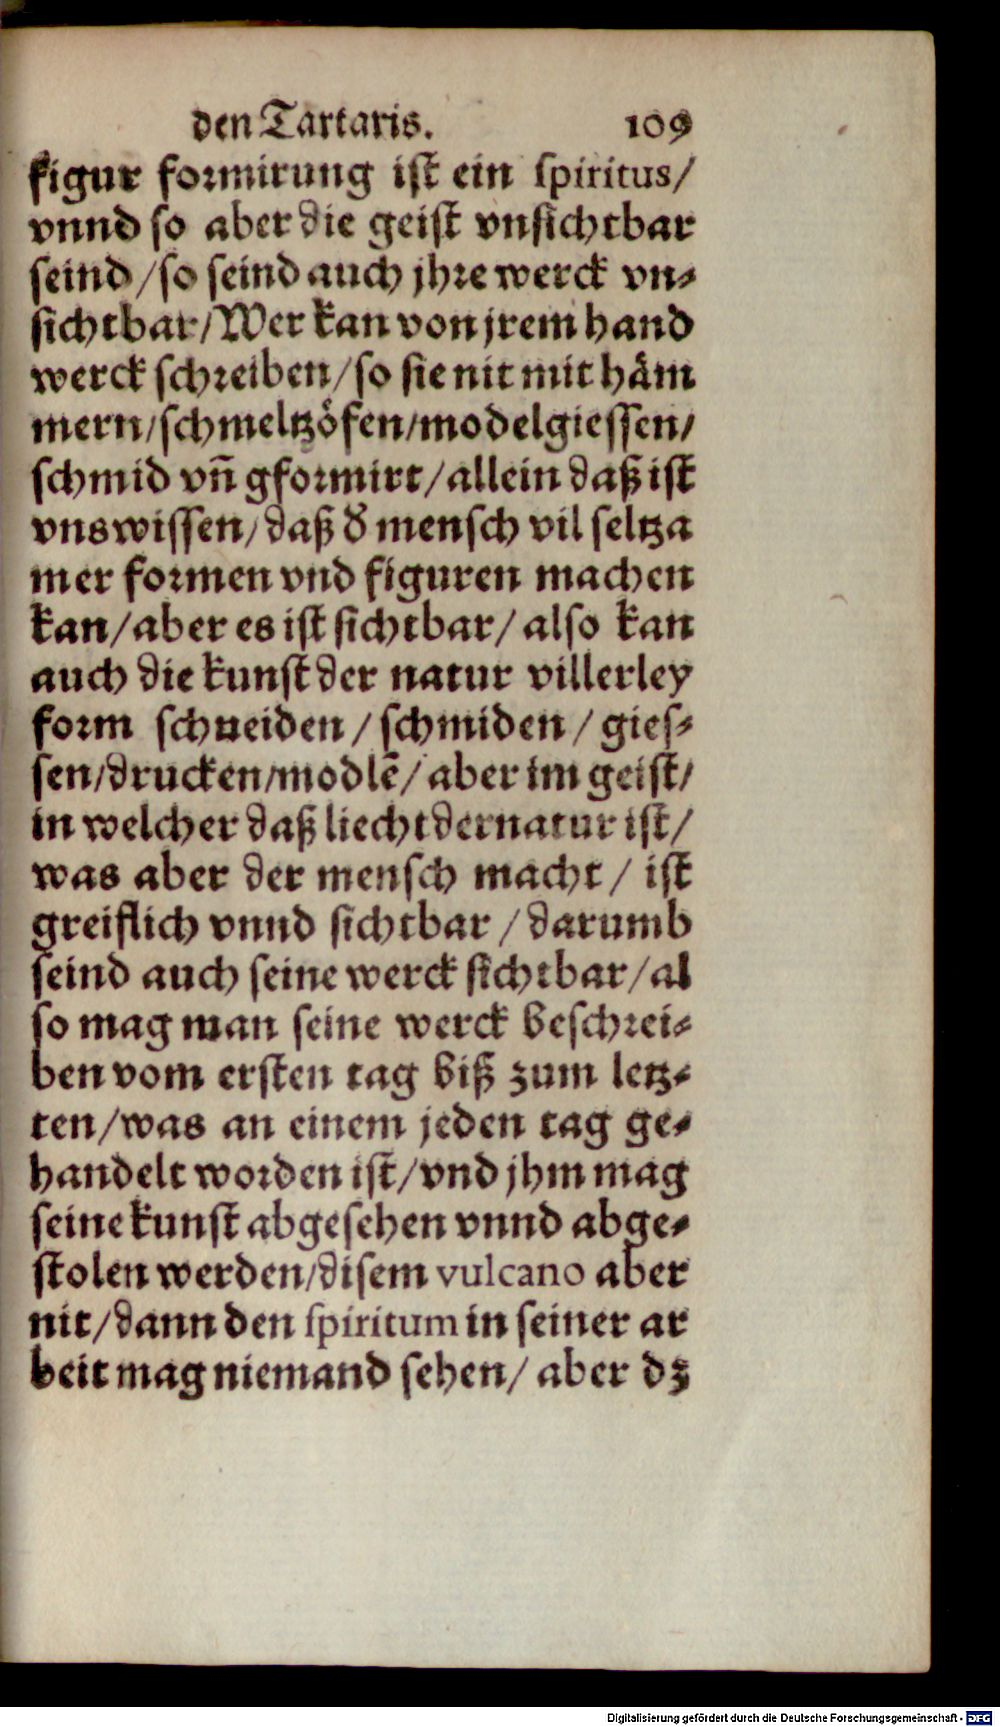 den Tartaris. 109
figur formirung ist ein spiritus/
vnnd so aber die geist vnsichtbar
seind/so seind auch jhre werck vn⸗
sichtbar/Wer kan von jrem hand
werck schreiben/so sie nit mit häm
mern/schmeltzöfen/modelgiessen/
schmid vñ gformirt/allein daß ist
vns wissen/daß d̕ mensch vil seltza
mer formen vnd figuren machen
kan/aber es ist sichtbar/also kan
auch die kunst der natur villerley
form schneiden/schmiden/gies⸗
sen/drucken/modlē/aber im geist/
in welcher daß liecht der natur ist/
was aber der mensch macht/ist
greiflich vnnd sichtbar/darumb
seind auch seine werck sichtbar/al
so mag man seine werck beschrei⸗
ben vom ersten tag biß zum letz⸗
ten/was an einem jeden tag ge⸗
handelt worden ist/vnd jhm mag
seine kunst abgesehen vnnd abge⸗
stolen werden/disem vulcano aber
nit/dann den spiritum in seiner ar
beit mag niemand sehen/aber dz
Digitalisierung gefördert durch die Deutsche Forschungsgemeinschaft - DFG